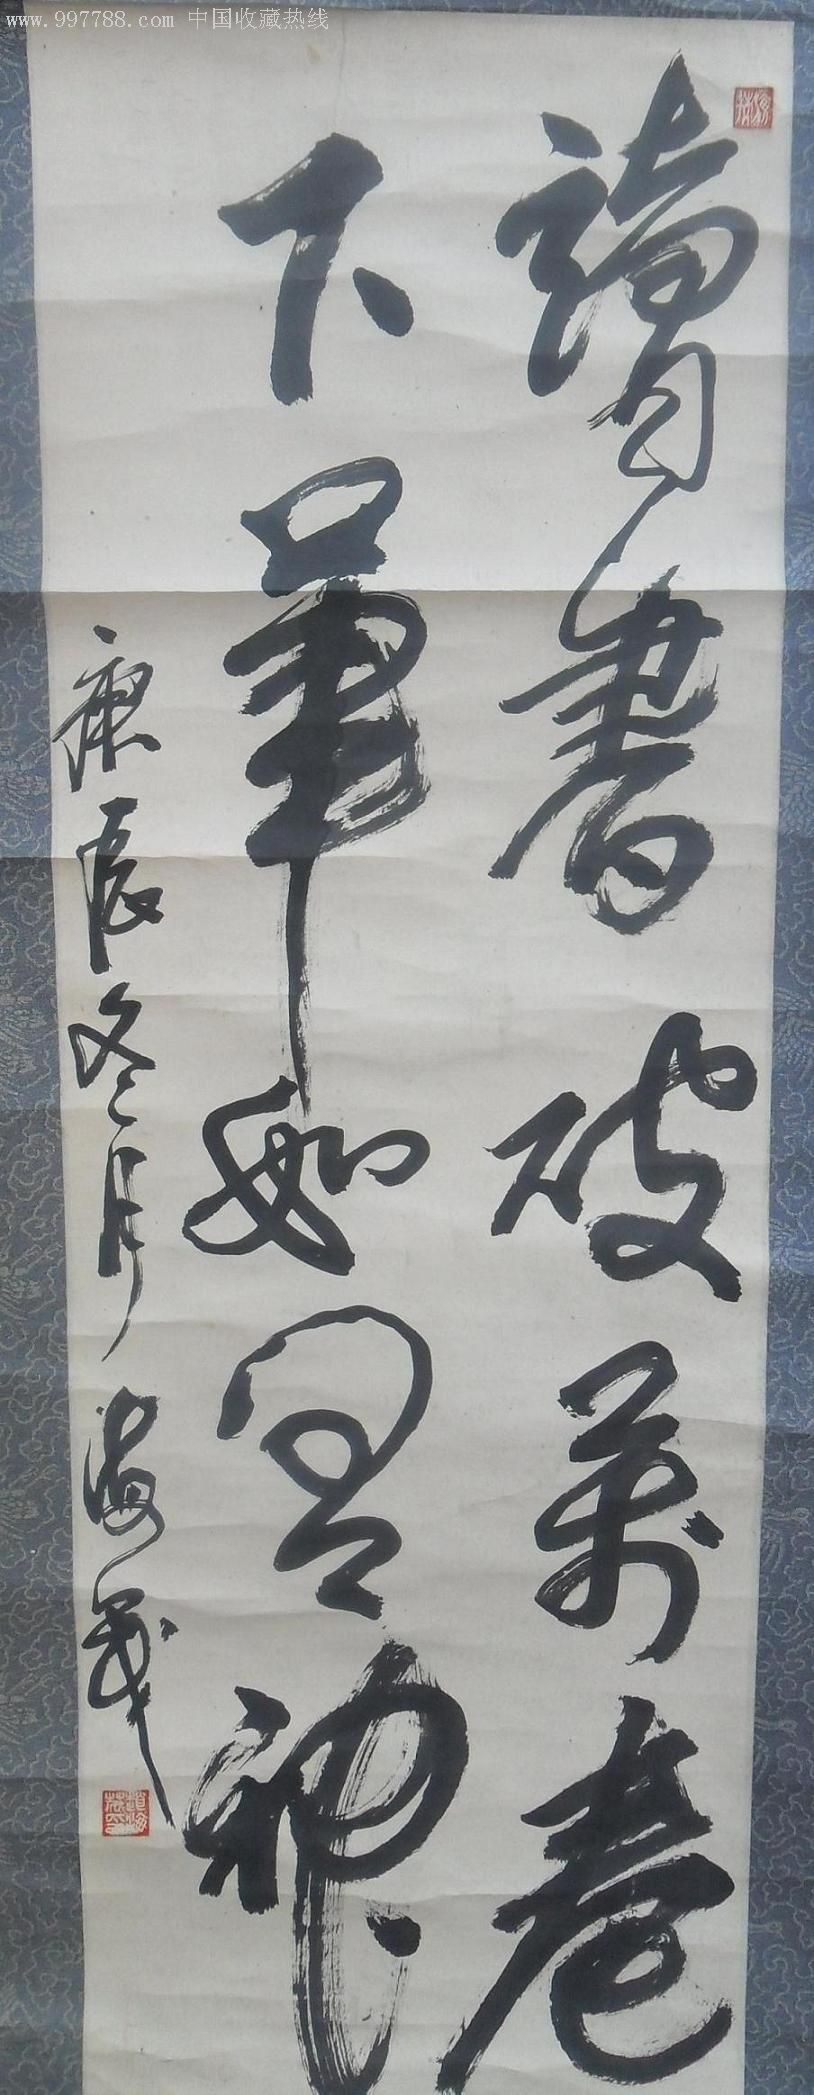 www.997788.com 中国收藏热线
讀書破萬卷
下筆如有神
庚辰冬月 海